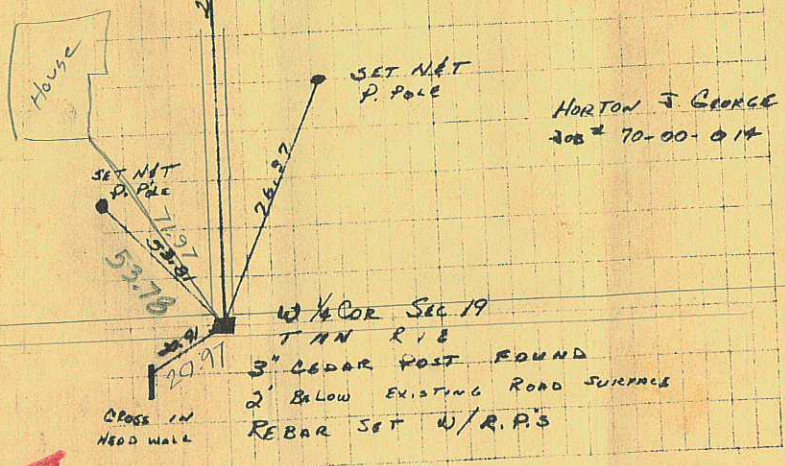 House
SET N&T
P. POLE
HORTON & GEORGE
JOB # 70-00-014
26.97
SET N&T
P. POLE
71.97
53.81
53.78
W 1/4 COR SEC 19
T N R 1 E
3" CEDAR POST FOUND
2' BELOW EXISTING ROAD SURFACE
REBAR SET W/ R.P.'S
20.97
CROSS IN
HEAD WALL